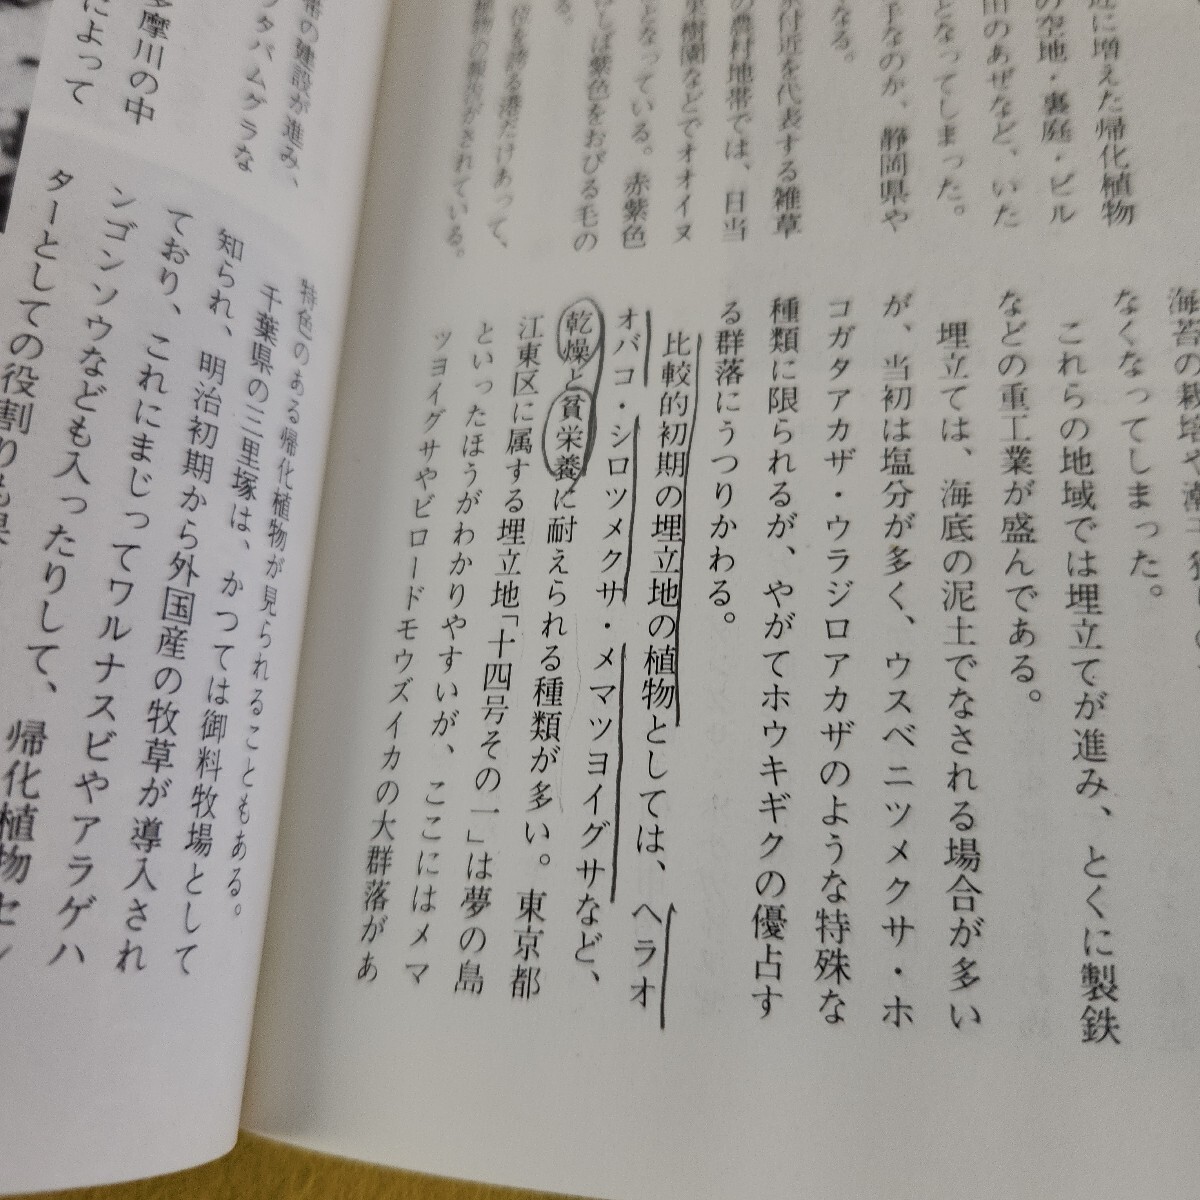 近に増えた帰化植物
の空地・裏庭・ビル
田のあぜなど、いた
となってしまった。
手なのか、静岡県や
なる。
水付近を代表する雑草
の農村地帯では、日当
果樹園などでオオイヌ
となっている。赤紫色
しば紫色をおびる毛の
る。
位を誇る港だけあって、
植物の報告がされている。
なくなってしまった。
これらの地域では埋立てが進み、とくに製鉄
などの重工業が盛んである。
埋立ては、海底の泥土でなされる場合が多い
が、当初は塩分が多く、ウスベニツメクサ・ホ
コガタアカザ・ウラジロアカザのような特殊な
種類に限られるが、やがてホウキギクの優占す
る群落にうつりかわる。
比較的初期の埋立地の植物としては、ヘラオ
オバコ・シロツメクサ・メマツヨイグサなど、
乾燥と貧栄養に耐えられる種類が多い。東京都
江東区に属する埋立地「十四号その一」は夢の島
といったほうがわかりやすいが、ここにはメマ
ツヨイグサやビロードモウズイカの大群落があ
帯の建設が進み、
ツタバムグラな
多摩川の中
によって
特色のある帰化植物が見られることもある。
千葉県の三里塚は、かつては御料牧場として
知られ、明治初期から外国産の牧草が導入され
ており、これにまじってワルナスビやアラゲハ
ンゴンソウなども入ったりして、帰化植物セン
ターとしての役割りも果